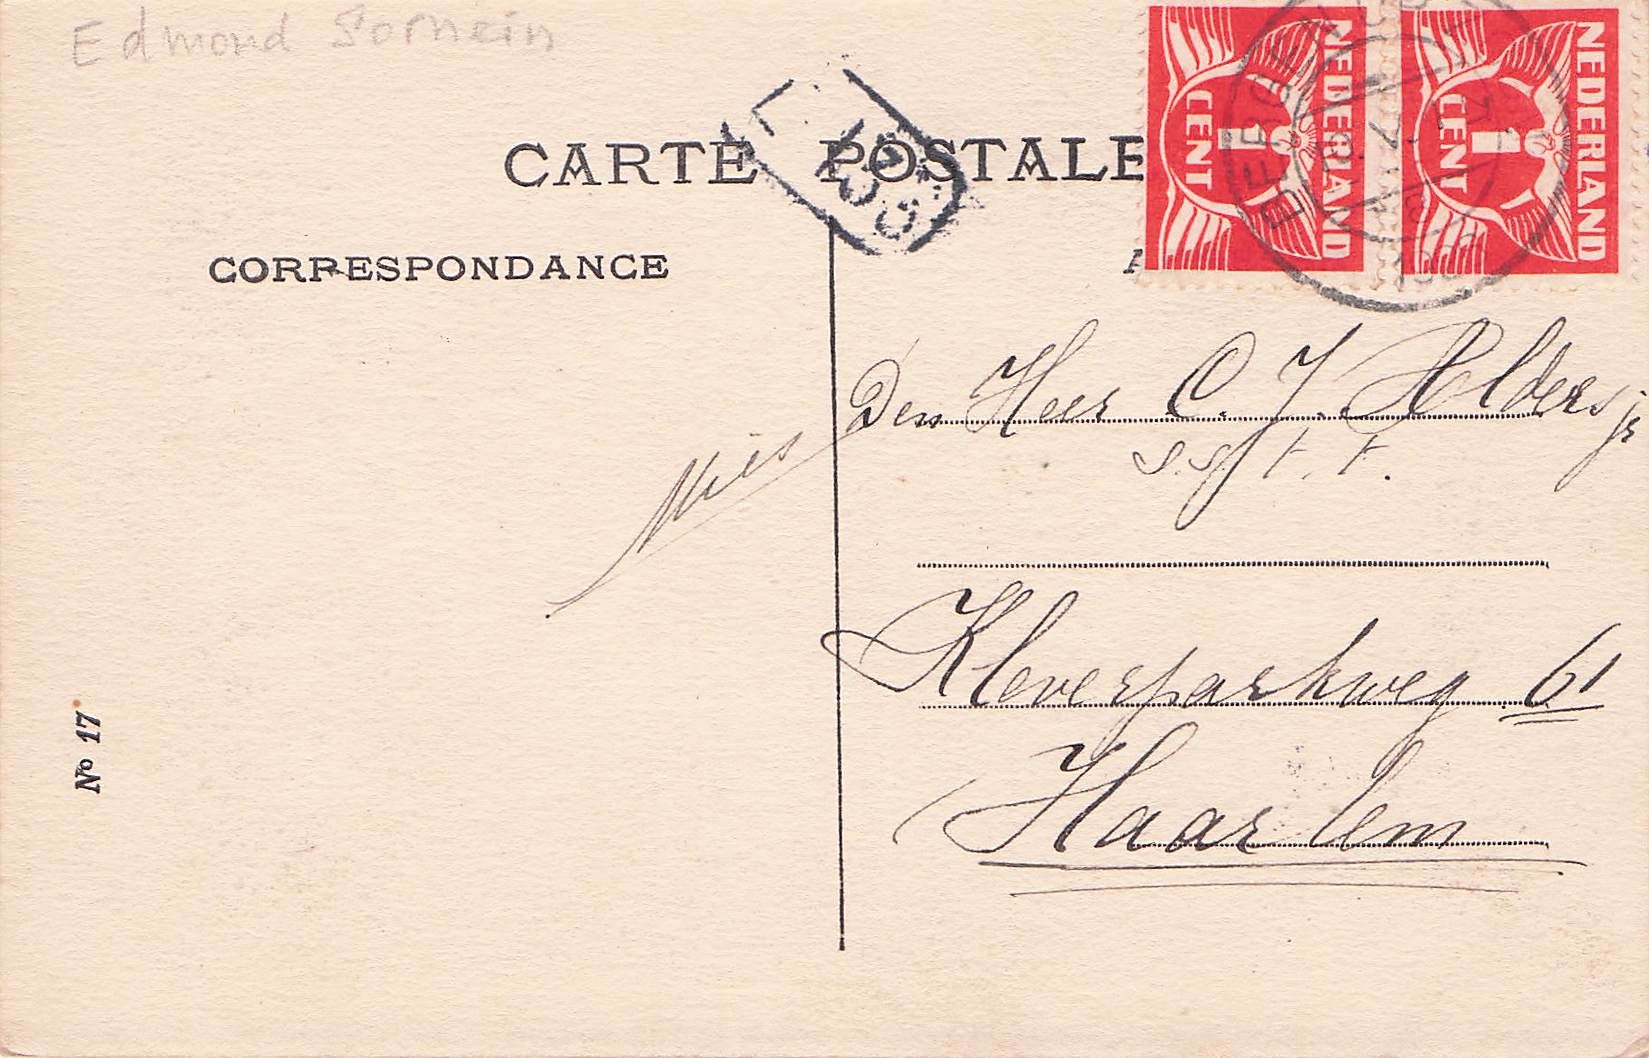 Edmond Sornein
CARTE POSTALE
CORRESPONDANCE
NEDERLAND
1 CENT
NEDERLAND
1 CENT
BERGEN
Den Heer C. J. Alders jr
s.s./t.t.
Mies
Kleverparkweg 61
Haarlem
No 17